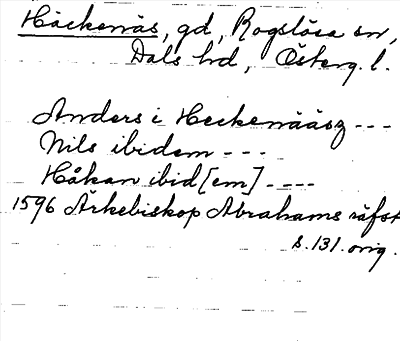 Häckenäs, gd, Rogslösa sn,
Dals hd, Österg. l.
Anders i Heckenääsz ---
Nils ibidem ---
Håkan ibid[em] ----
1596 Ärkebiskop Abrahams räfst
s. 131. orig.